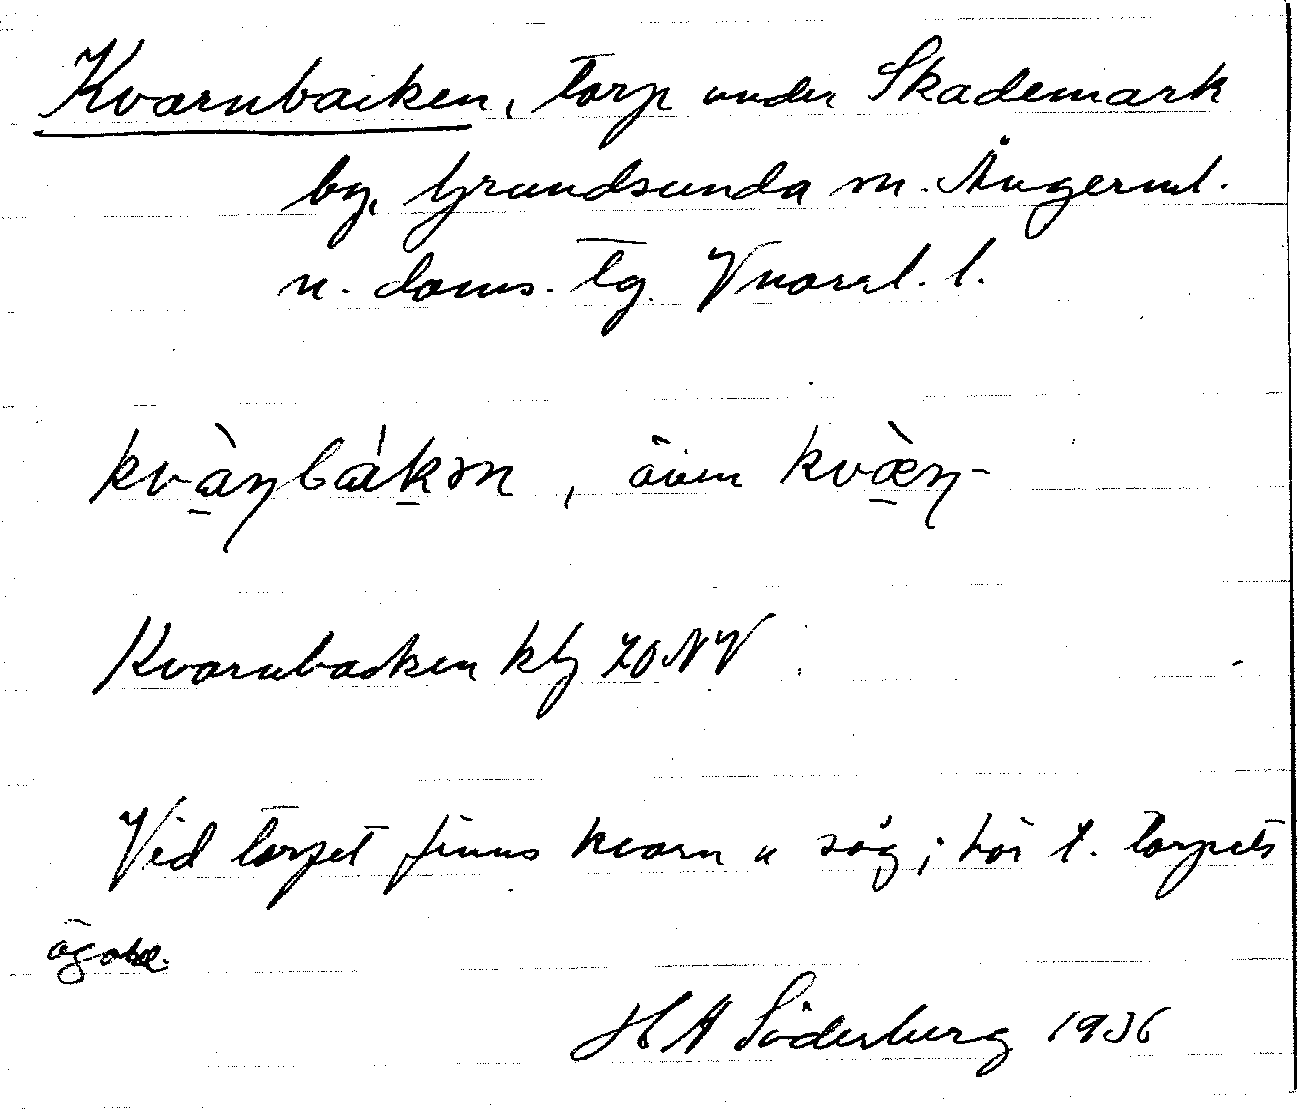 Kvarnbacken, torp under Skademark
by, Grundsunda sn. Ångerml.
n. doms. tg. Vnorrl. l.
kvàɳbákən, även kvæ̀ɳ-
Kvarnbacken kbl 70 NV
Vid torpet finns kvarn o såg; hör t. torpets
ägor.
H A Söderberg 1936